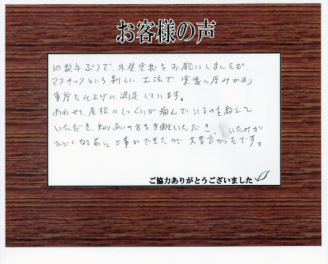 お客様の声
10数年ぶりで、外壁塗装をお願いしましたが
マスチックという新しい工法で塗装に厚みがあり
重厚な仕上げに満足しています。
あわせて、屋根のしっくいが痛んでいるのを教えて
いただき、知りあいの方を手配いただき、いたみが
ひどくなる前に工事ができたので大変よかったです。
ご協力ありがとうございました